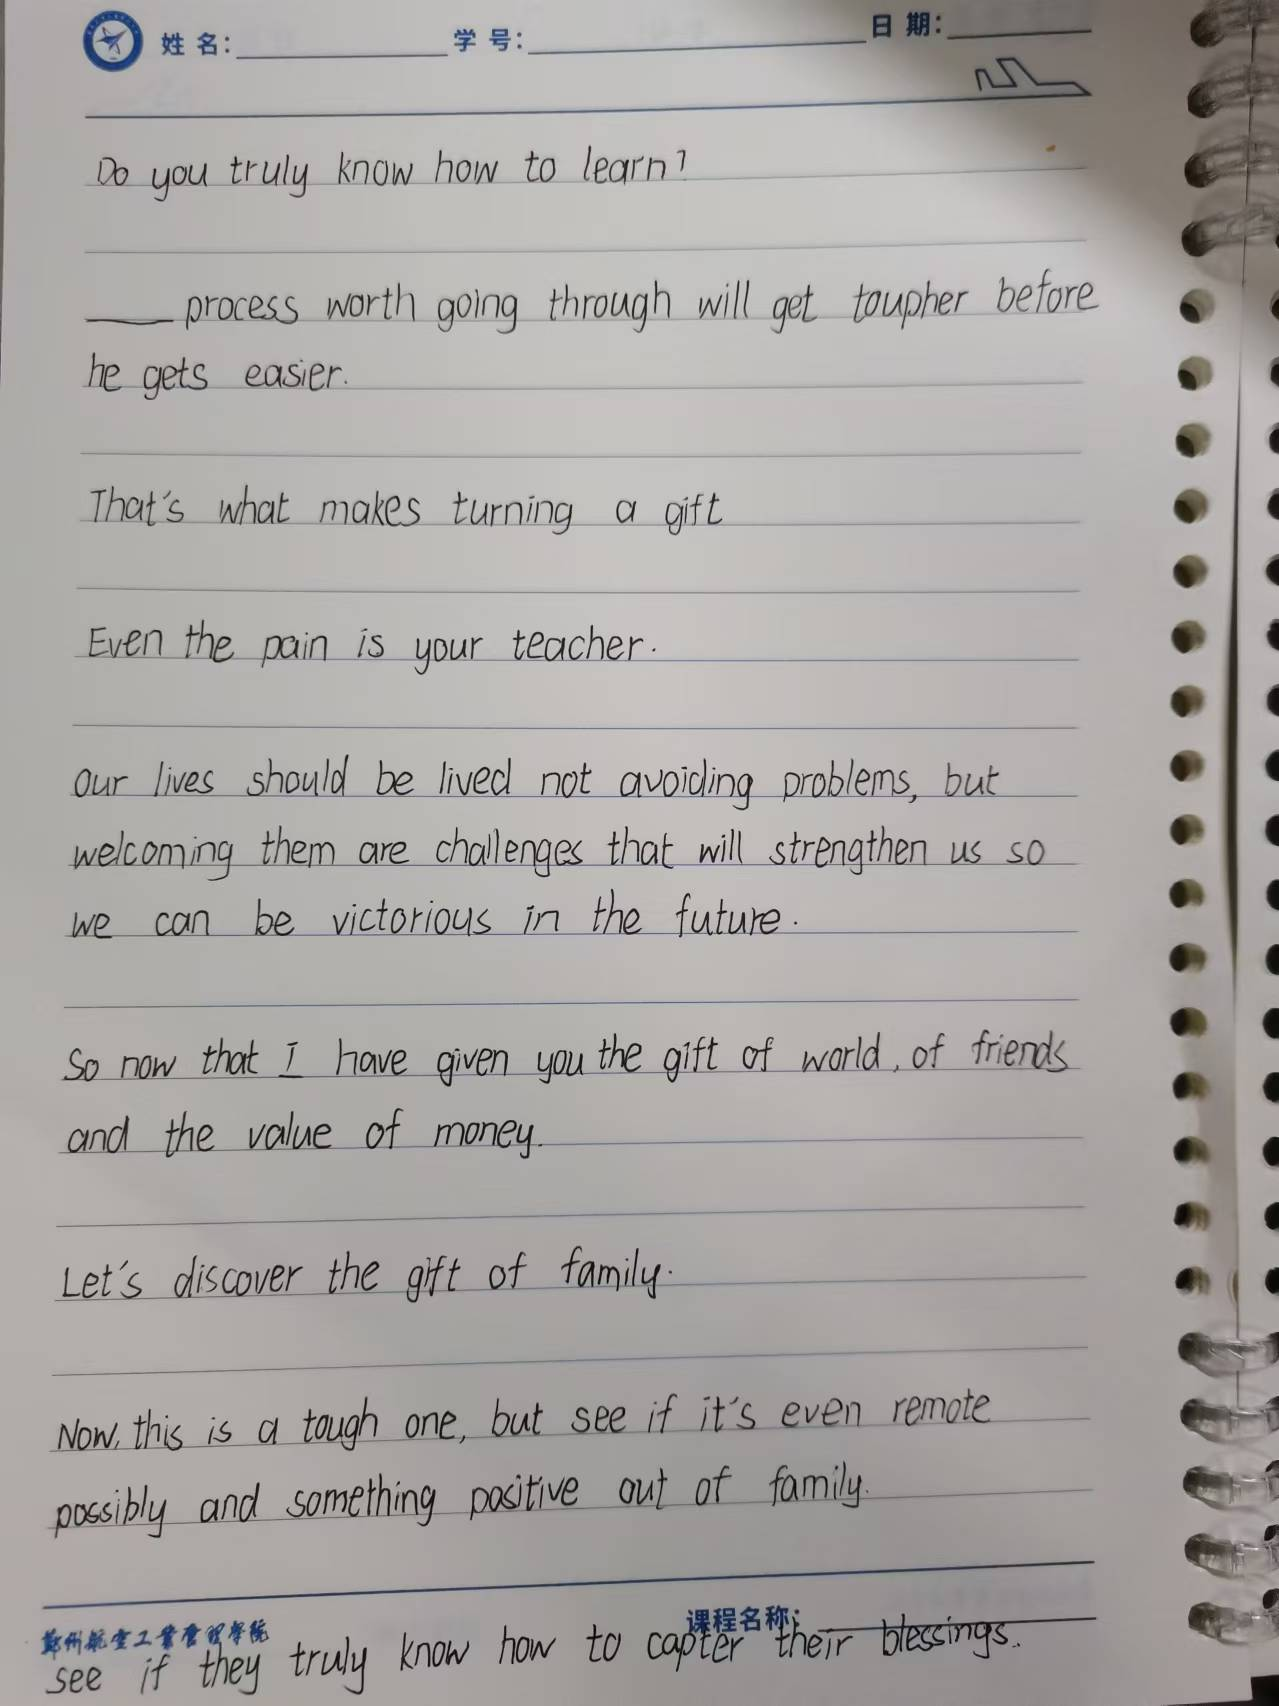 姓 名: 学 号: 日 期:
Do you truly know how to learn?
____ process worth going through will get toupher before
he gets easier.
That's what makes turning a gift
Even the pain is your teacher.
our lives should be lived not avoiding problems, but
welcoming them are challenges that will strengthen us so
we can be victorious in the future.
So now that I have given you the gift of world, of friends
and the value of money.
Let's discover the gift of family.
Now, this is a tough one, but see if it's even remote
possibly and something positive out of family.
郑州航空工业管理学院 课程名称:
see if they truly know how to capter their blessings.